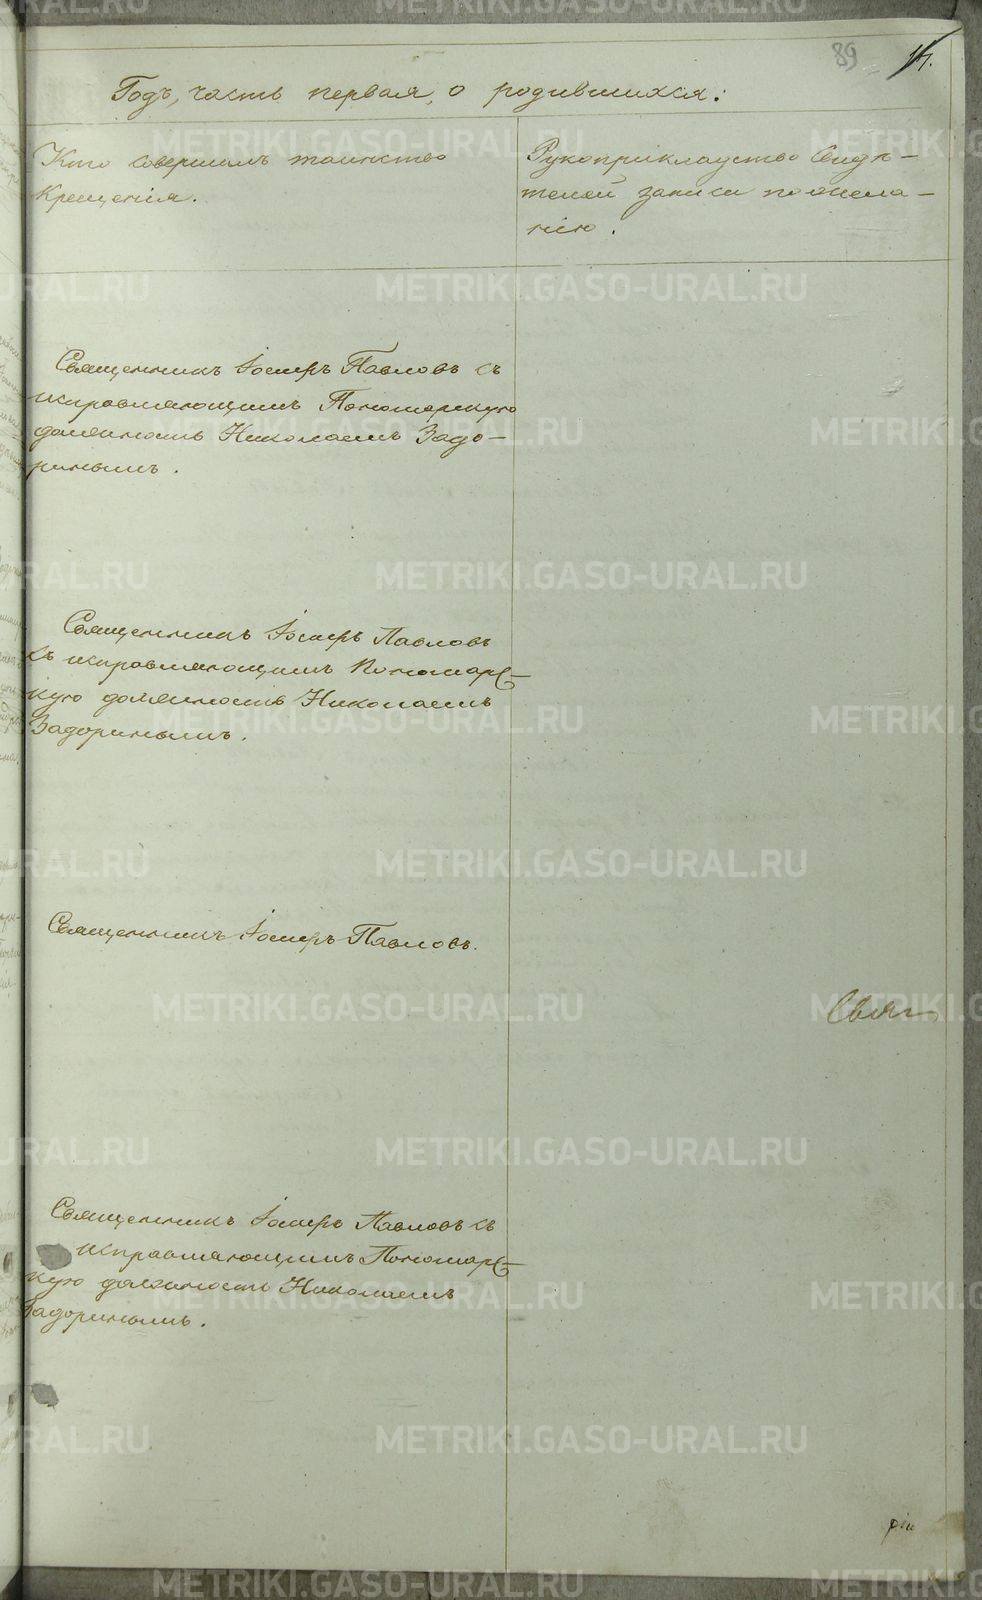 89
Годъ, часть первая, о родившихся:
Кто совершалъ таинство
Крещенія.
Рукоприкладство свидѣ-
телей записи по жела-
нію.
Священникъ Іосифъ Павловъ съ
исправляющимъ Пономарскую
должность Николаемъ Задо-
ринымъ.
Священникъ Іосифъ Павловъ
съ исправляющимъ Пономарс-
кую должность Николаемъ
Задоринымъ.
Священникъ Іосифъ Павловъ.
Священникъ Іосифъ Павловъ съ
исправляющимъ Пономарс-
кую должность Николаемъ
Задоринымъ.
METRIKI.GASO-URAL.RU